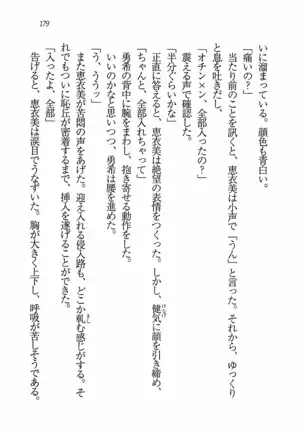 179
いに溜まっている。顔色も青白い。
「痛いの？」
当たり前のことを訊くと、恵衣美は小声で「うん」と言った。それから、ゆっくり
と息を吐きだし、
「オチン×ン、全部入ったの？」
震える声で確認した。
「半分ぐらいかな」
正直に答えると、恵衣美は絶望の表情をつくった。しかし、健気に顔を引き締め、
「ちゃんと、全部入れちゃって」
勇希の背中に腕をまわし、抱き寄せる動作をした。
いいのかなと思いつつ、勇希は腰を進めた。
「う、ううッ」
また恵衣美が苦悶の声をあげた。迎え入れる侵入路も、どこか軋む感じがする。そ
れでも、ついに恥丘が密着するまで、挿入を遂げることができた。
「入ったよ、全部」
告げると、恵衣美は涙目でうなずいた。胸が大きく上下し、呼吸が苦しそうである。